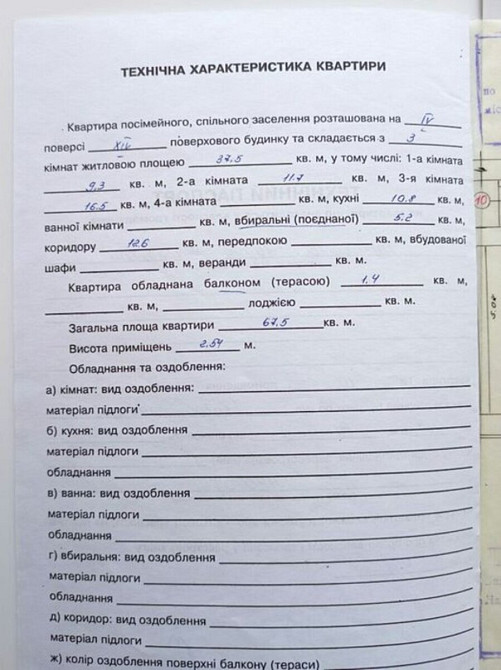 ТЕХНІЧНА ХАРАКТЕРИСТИКА КВАРТИРИ
Квартира посімейного, спільного заселення розташована на IV
поверсі XIV поверхового будинку та складається з 3
кімнат житловою площею 37.5 кв. м, у тому числі: 1-а кімната
9.3 кв. м, 2-а кімната 11.7 кв. м, 3-я кімната
16.5 кв. м, 4-а кімната кв. м, кухні 10.8 кв. м,
ванної кімнати кв. м, вбиральні (поєднаної) 5.2 кв. м,
коридору 12.6 кв. м, передпокою кв. м, вбудованої
шафи кв. м, веранди кв. м.
Квартира обладнана балконом (терасою) 1.4 кв. м,
кв. м, лоджією кв. м.
Загальна площа квартири 67.5 кв. м.
Висота приміщень 2.54 м.
Обладнання та оздоблення:
а) кімнат: вид оздоблення:
матеріал підлоги
б) кухня: вид оздоблення
матеріал підлоги
обладнання
в) ванна: вид оздоблення
матеріал підлоги
обладнання
г) вбиральня: вид оздоблення
матеріал підлоги
обладнання
д) коридор: вид оздоблення
матеріал підлоги
ж) колір оздоблення поверхні балкону (тераси)
по
10